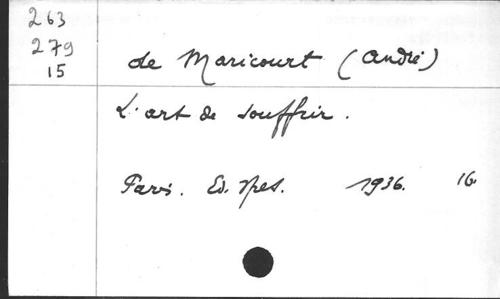 263
279
15
de Maricourt (André)
L'art de souffrir.
Paris. Ed. Spes. 1936. 16.